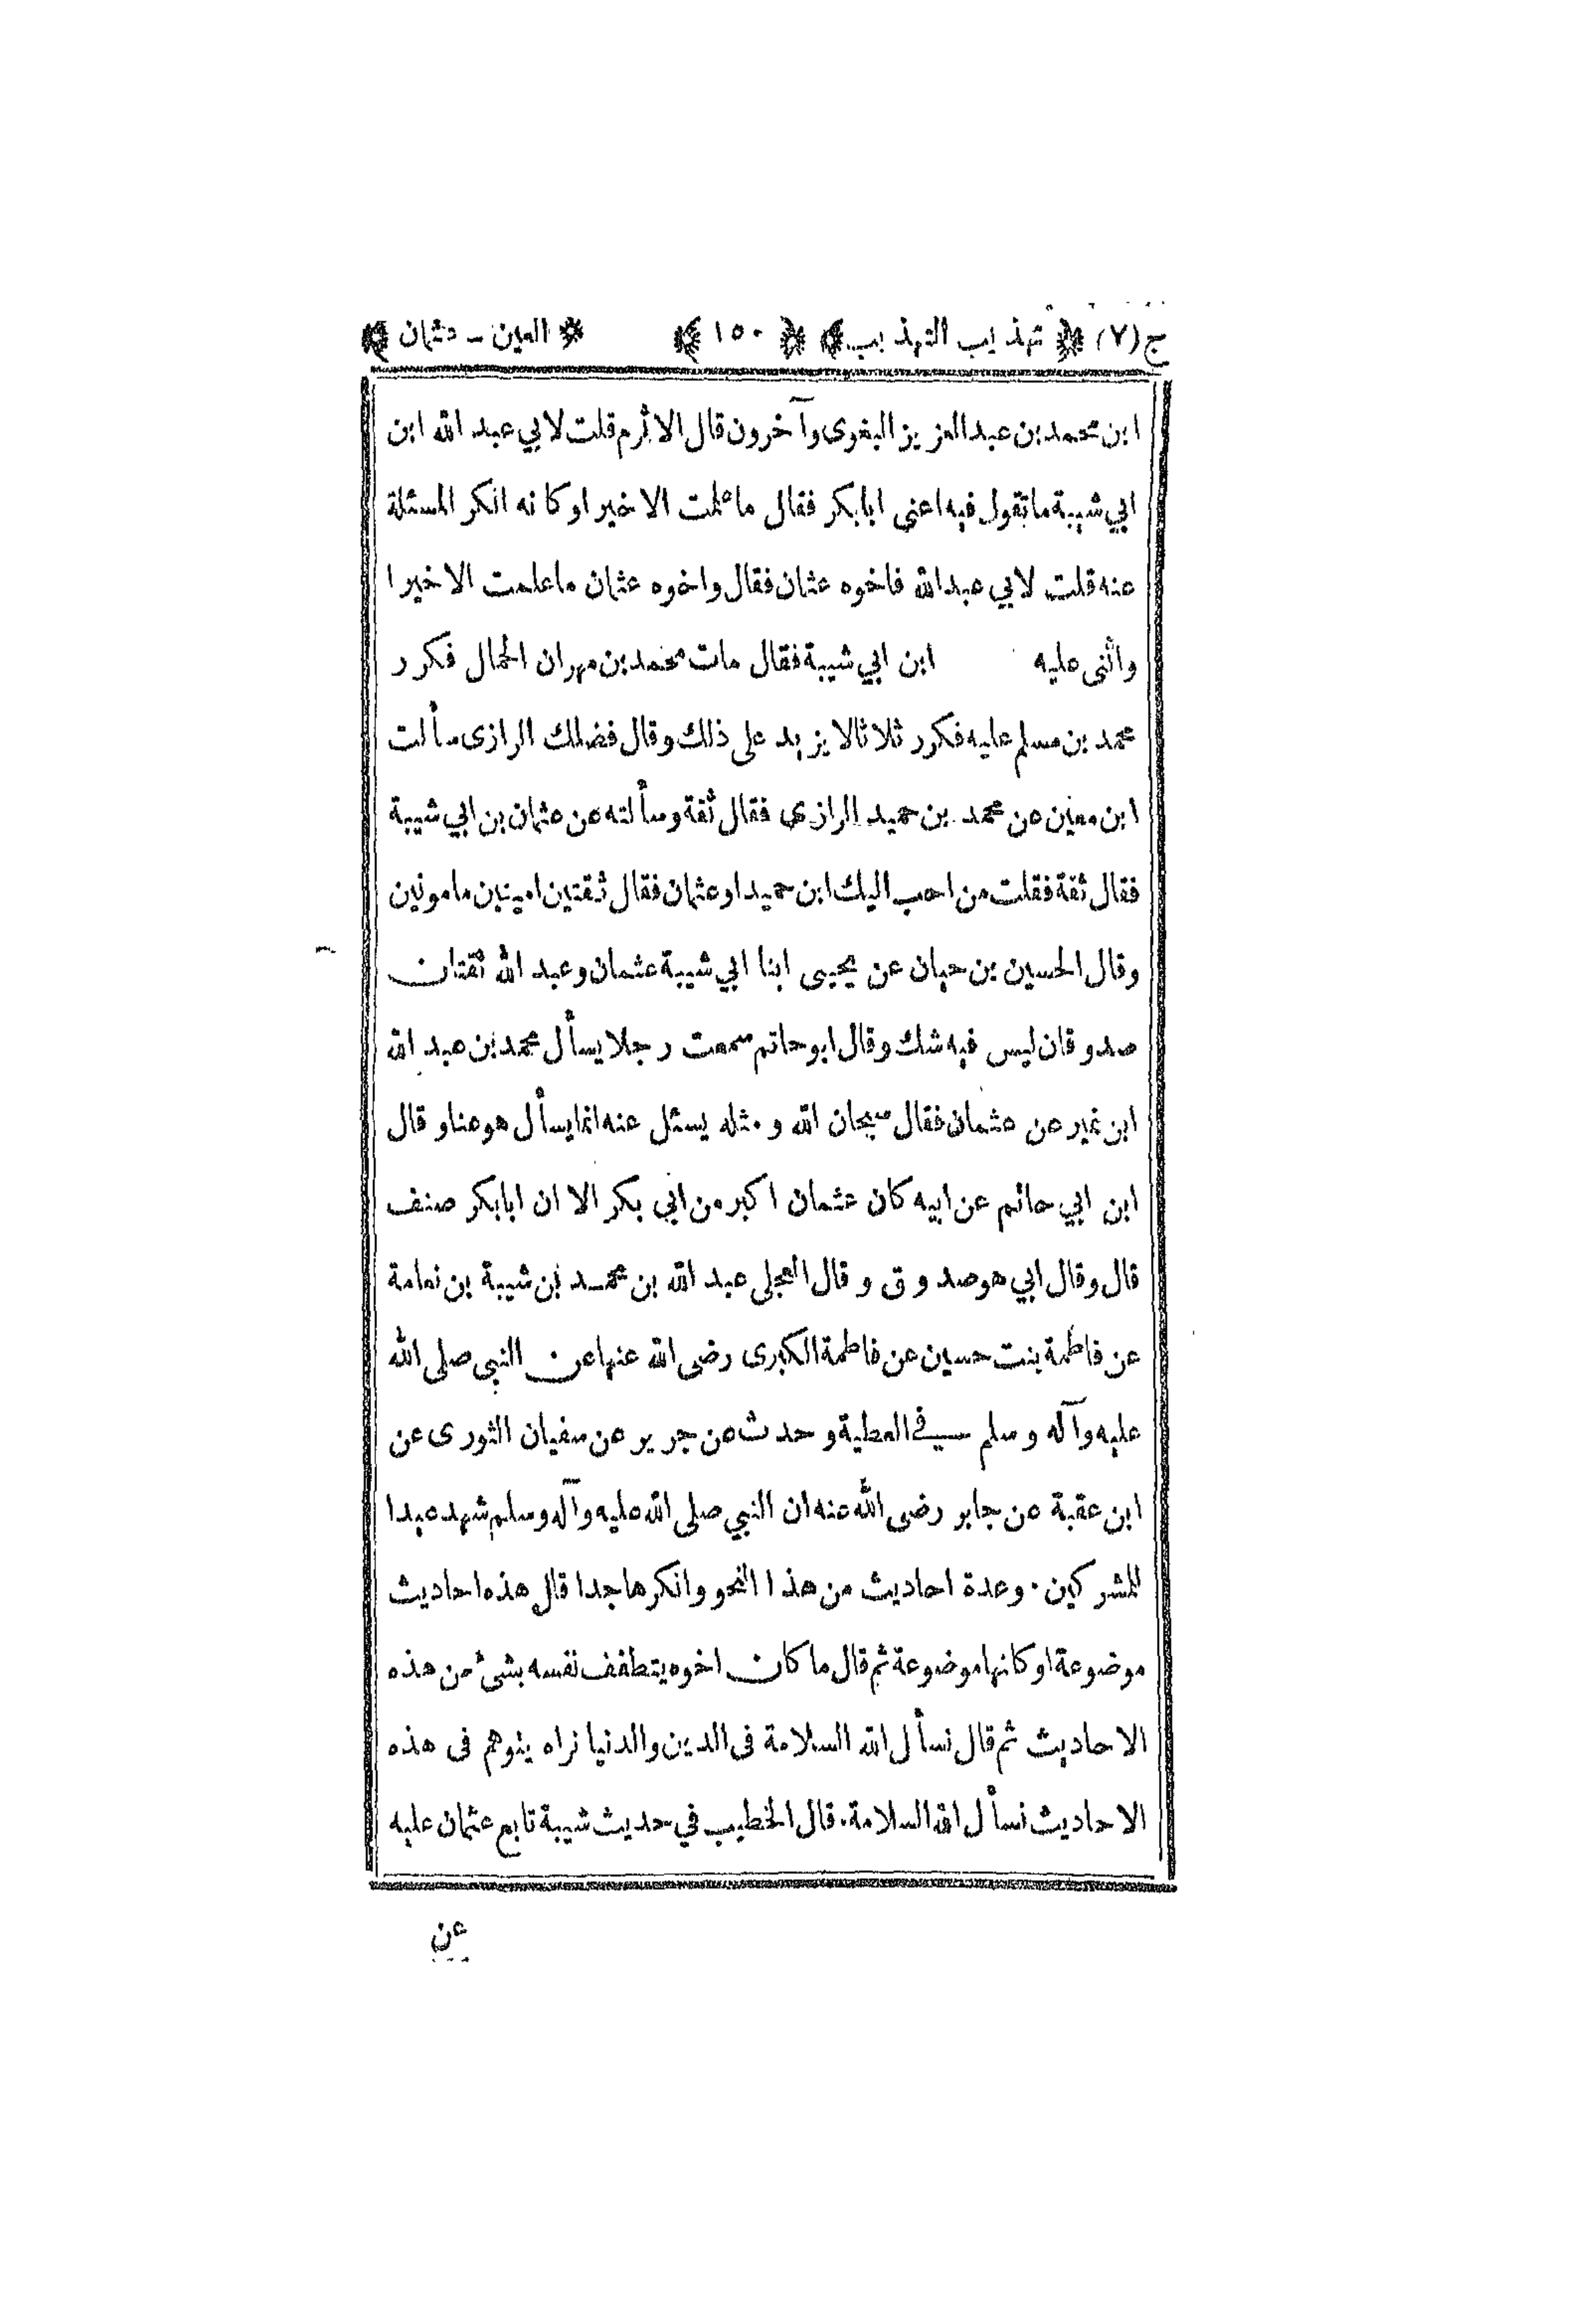 ج (٧) ﴿ تهذيب التهذيب ﴾ ﴿ ١٥٠ ﴾ * العين - عثمان ﴾
ابن محمد بن عبد العزيز البغوى وآخرون قال الاثرم قلت لابي عبد الله ابن
ابي شيبة ما تقول فيه اعنى ابا بكر فقال ما علمت الا خيرا وكانه انكر المسئلة
عنه قلت لابي عبد الله فاخوه عثمان فقال واخوه عثمان ما علمت الا خيرا
واثنى عليه ابن ابي شيبة فقال مات محمد بن مهران الجمال فكرر
محمد بن مسلم عليه فكرر ثلاثا لا يزيد على ذلك وقال فضلك الرازى سألت
ابن معين عن محمد بن حميد الرازى فقال ثقة وسألته عن عثمان بن ابي شيبة
فقال ثقة فقلت من احب اليك ابن حميد او عثمان فقال ثقتين امينين مامونين
وقال الحسين بن حبان عن يحيى ابنا ابي شيبة عثمان وعبد الله ثقتان
صدوقان ليس فيه شك وقال ابو حاتم سمعت رجلا يسأل محمد بن عبد الله
ابن نمير عن عثمان فقال سبحان الله ومثله يسئل عنه انما يسأل هو عنا وقال
ابن ابي حاتم عن ابيه كان عثمان اكبر من ابي بكر الا ان ابا بكر صنف
قال وقال ابي هو صدوق وقال العجلى عبد الله بن محمد بن شيبة بن نعامة
عن فاطمة بنت حسين عن فاطمة الكبرى رضى الله عنها عن النبى صلى الله
عليه وآله وسلم فى العطية وحدث عن جرير عن سفيان الثورى عن
ابن عقبة عن جابر رضى الله عنه ان النبي صلى الله عليه وآله وسلم شهد عيدا
للمشركين . وعدة احاديث من هذا النحو وانكرها جدا قال هذه احاديث
موضوعة او كانها موضوعة ثم قال ما كان اخوه يتطفف نفسه بشئ من هذه
الاحاديث ثم قال نسأل الله السلامة فى الدين والدنيا نراه يتوهم فى هذه
الاحاديث نسأل الله السلامة . قال الخطيب في حديث شيبة تابع عثمان عليه
عن